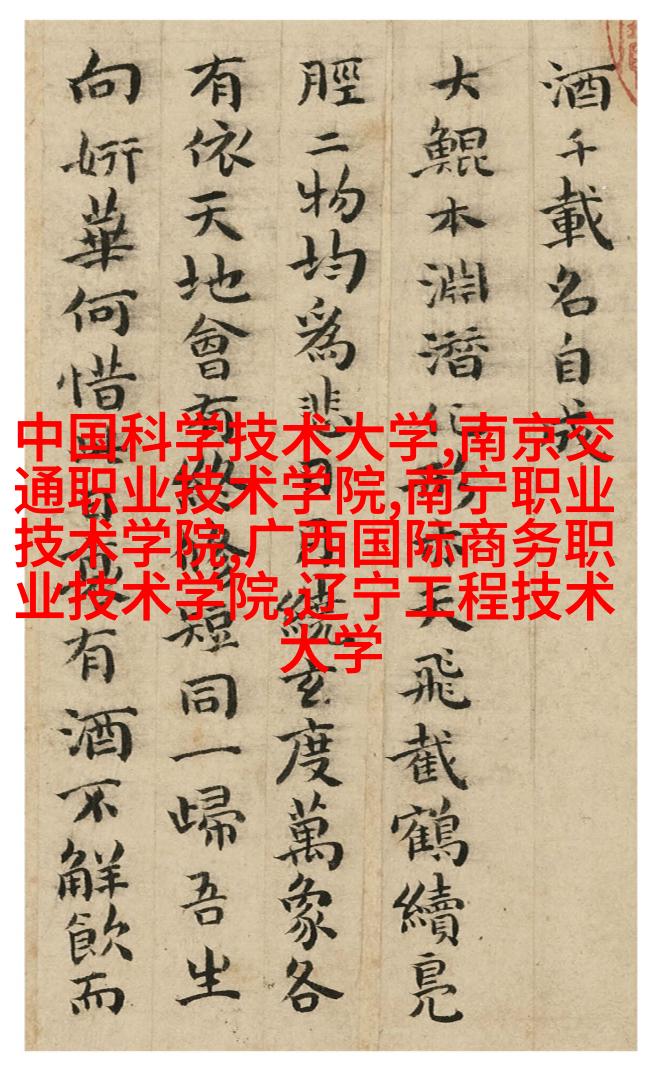 酒千載名自成
大鯤本淵潛化際天飛截鶴續鳧
脛二物均爲悲日月繞玄度萬象各
有依天地會有終脩短同一歸吾生
向妍華何惜有酒不解飲而
中国科学技术大学,南京交
通职业技术学院,南宁职业
技术学院,广西国际商务职
业技术学院,辽宁工程技术
大学